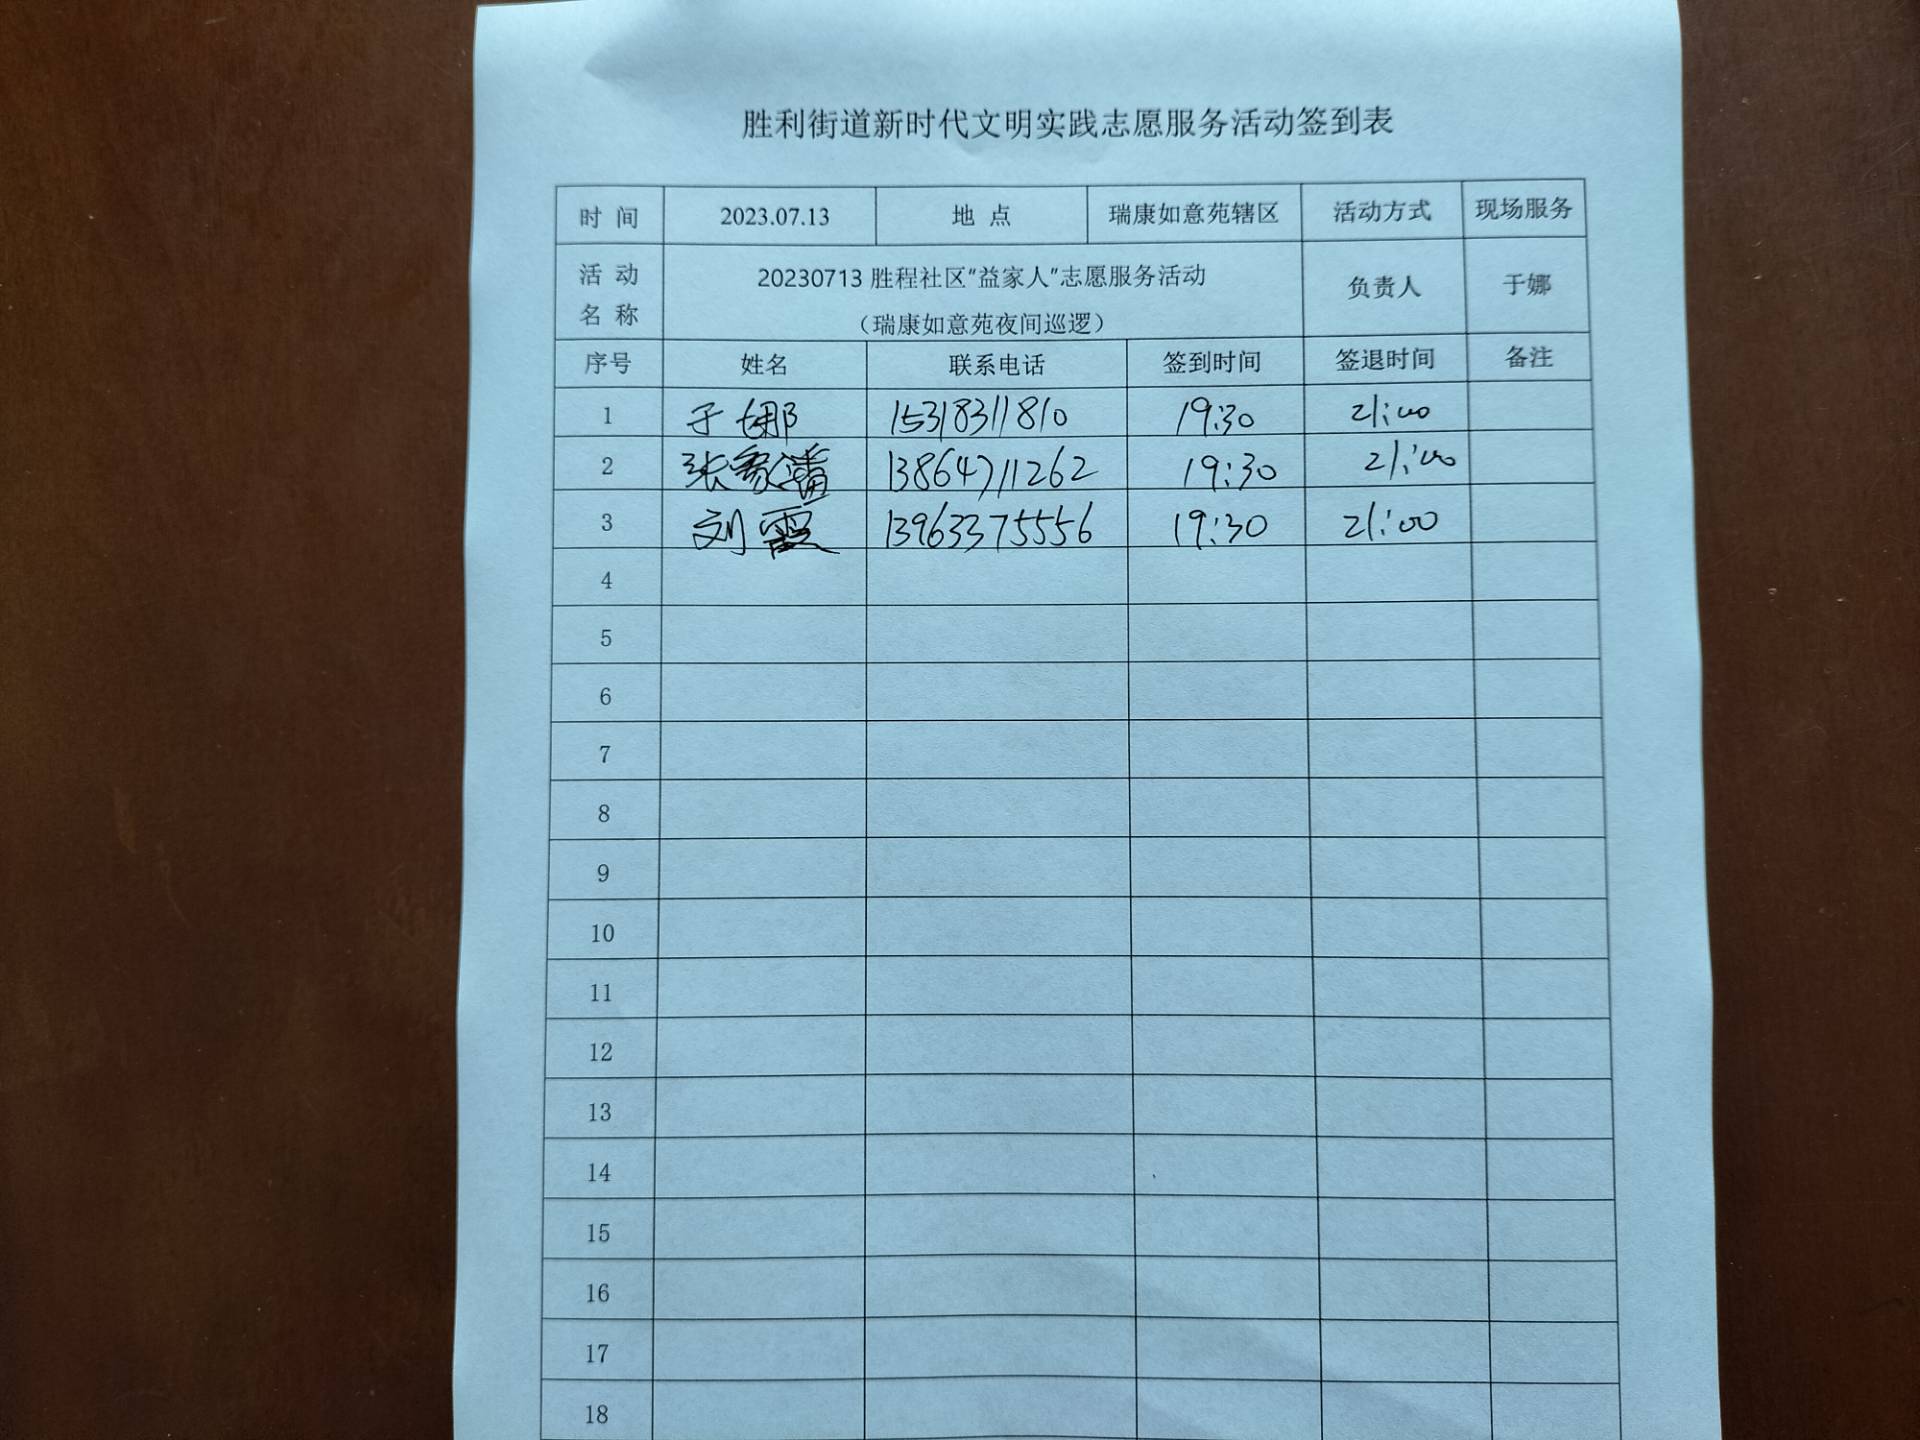 胜利街道新时代文明实践志愿服务活动签到表
时 间 2023.07.13 地 点 瑞康如意苑辖区 活动方式 现场服务
活 动 名 称 20230713 胜程社区“益家人”志愿服务活动 负责人 于娜
（瑞康如意苑夜间巡逻）
序号 姓名 联系电话 签到时间 签退时间 备注
1 于娜 15318311810 19:30 21:00
2 张家 13864711262 19:30 21:00
3 刘霞 13963375556 19:30 21:00
4
5
6
7
8
9
10
11
12
13
14
15
16
17
18